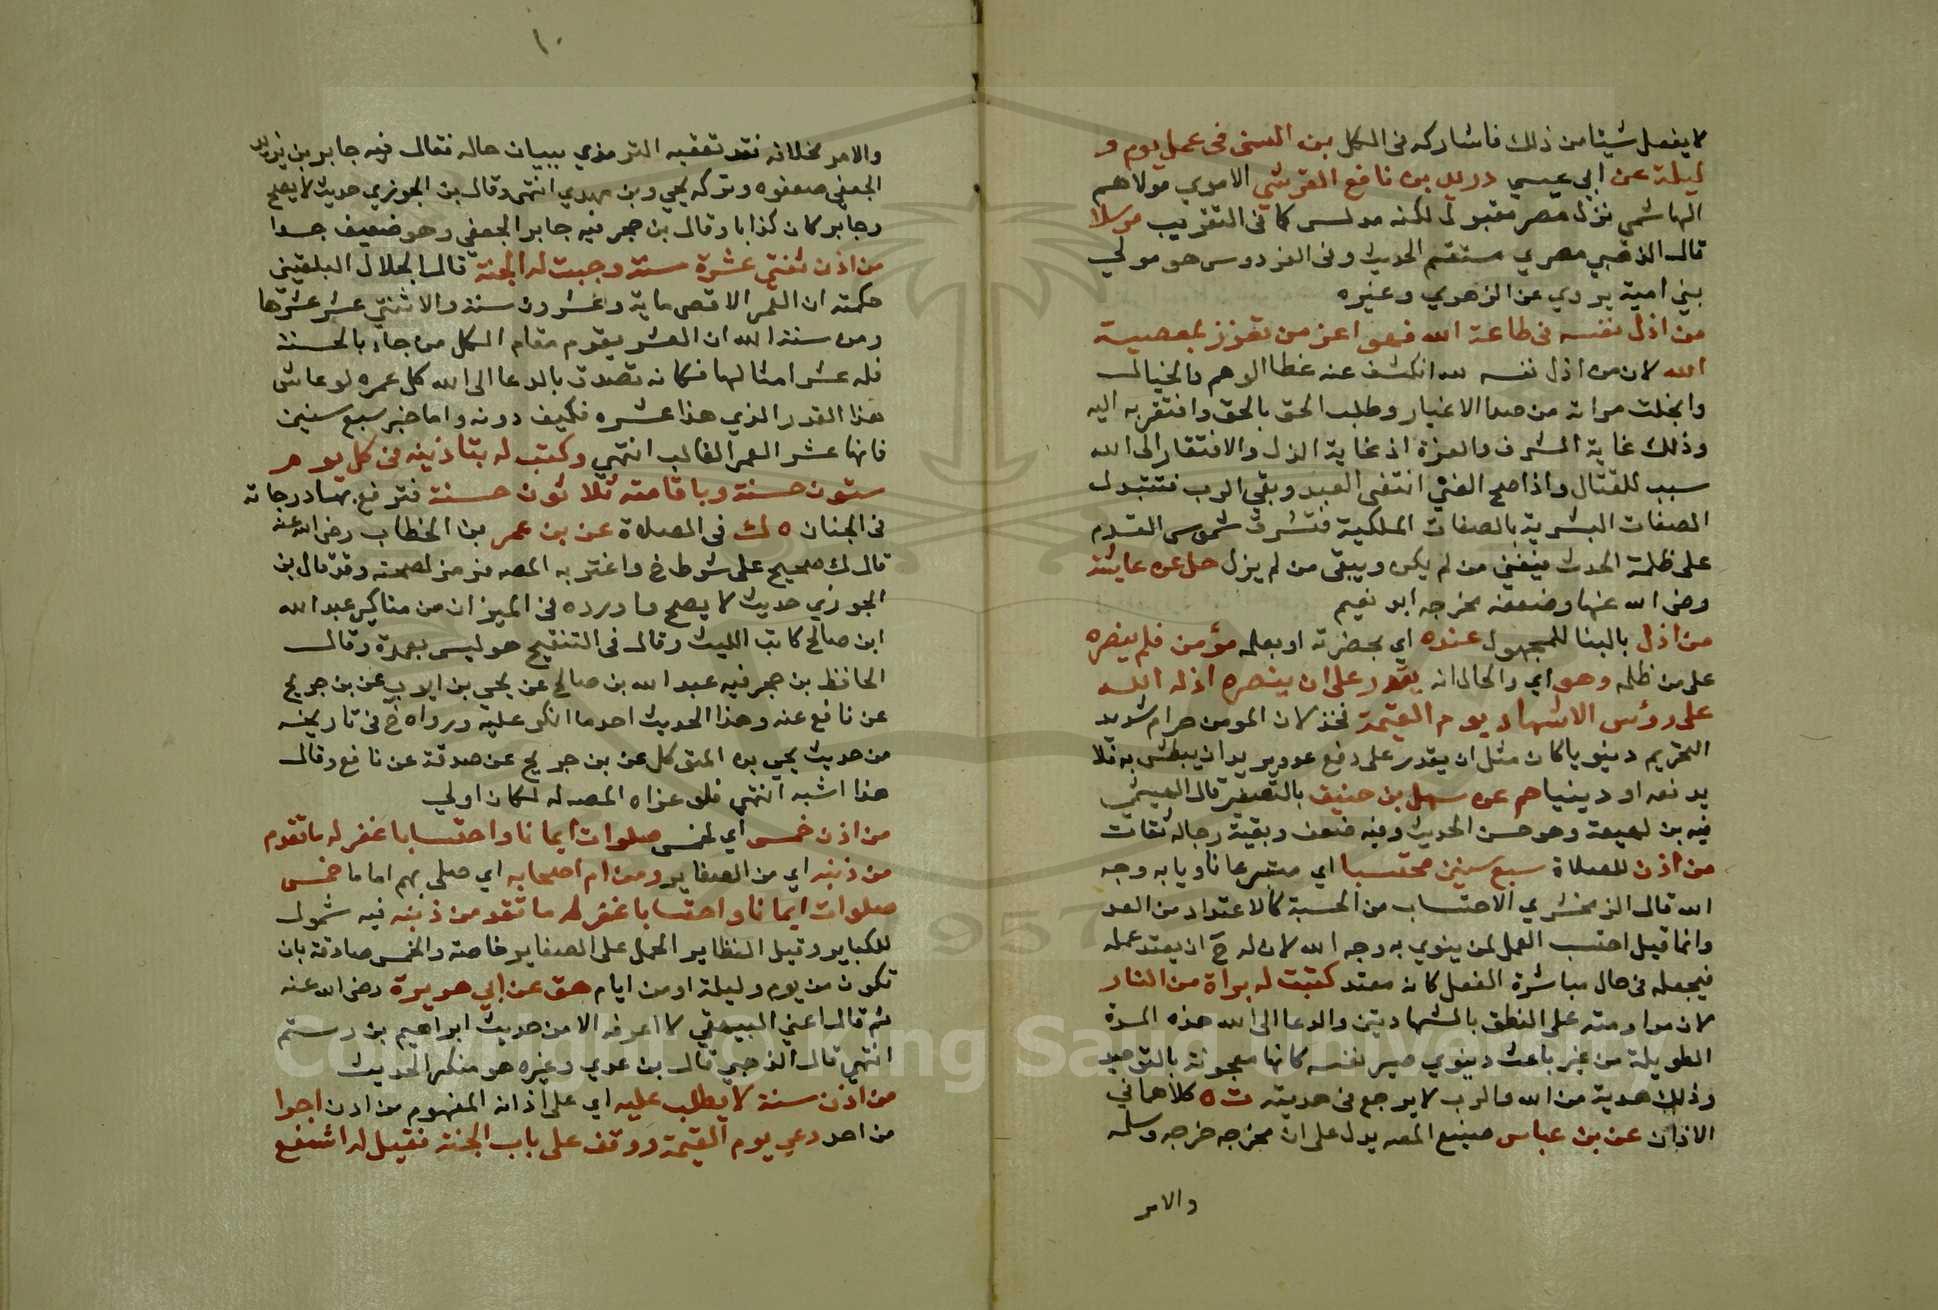 لا يفعل شيئا من ذلك فاشاركه في الكل بن السني في عمل يوم و
ليلة عن ابي عيسي دريد بن نافع القرشي الاموي مولاهم
الهاشمي نزل مصر مقبول لكنه مدلس كما في التقريب مرسلا
قال الذهبي مصري مستقيم الحديث وفي الفردوس هو مولي
بني امية يروي عن الزهري وغيره
من اذل نفسه في طاعة الله فهو اعز من تعزز بمعصية
الله لان من اذل نفسه لله انكشف عنه غطا الوهم والخيال
وانجلت مراته من صدا الاغيار وطلب الحق بالحق وافتقر به اليه
وذلك غاية الشرف والعزة اذ غاية الذل والافتقار الى الله
سبب للقتال واذا صح الفنى انتفى العبد وبقي الرب فتتبدل
الصفات البشرية بالصفات الملكية فتشرق شموس القدم
على ظلمة الحدث فيفني من لم يكن ويبقى من لم يزل حل عن عايشة
رضي الله عنها وضعفه مخرجه ابو نعيم
من اذل بالبنا للمجهول عنده اي بحضرته او بعلمه مؤمن فلم ينصره
على من ظلمه وهو اي والحال انه يقدر على ان ينصره اذله الله
على رؤس الاشهاد يوم القيمة فخذلان المومن حرام شديد
التحريم دينويا كان مثل ان يقدر على دفع عدو يريد ان يبطش به فلا
يدفعه او دينيا حم عن سهل بن حنيف بالتصغير قال الهيثمي
فيه بن لهيعة وهو حسن الحديث وفيه ضعف وبقية رجاله ثقات
من اذن للصلاة سبع سنين محتسبا اي متبرعا ناويا به وجه
الله قال الزمخشري الاحتساب من الحسبة كالاعتداد من العد
وانما قيل احتسب العمل لمن ينوي به وجه الله لان له ح ان يعتد عمله
فيجعله في حال مباشرة الفعل كانه معتد كتبت له براة من النار
لان مداومته على النطق بالشهادتين والدعا الى الله هذه المدة
الطويلة من غير باعث دينوي صير نفسه كانها معجونة بالتوحيد
وذلك هدية من الله والرب لا يرجع في هديته ت ه كلاهما في
الاذان عن بن عباس صنيع المصـ يدل على ان مخرجه خرجه وسلمه
والامر
١٠
والامر بخلافه فقد تعقبه الترمذي ببيان حاله فقال فيه جابر بن يزيد
الجعفي ضعفوه وتركه يحي وبن مهدي انتهى وقال بن الجوزي حديث لا يصح
وجابر كان كذابا وقال بن حجر فيه جابر الجعفي وهو ضعيف جدا
من اذن ثنتي عشرة سنة وجبت له الجنة قال الجلال البلقيني
حكمته ان العمر الاقصى ماية وعشرون سنة والاثنتي عشر عشرها
ومن سنة الله ان العشر يقوم مقام الكل من جاء بالحسنة
فله عشر امثالها فكانه تصدق بالدعا الى الله كل عمره لو عاش
هذا القدر الذي هذا عشره فكيف دونه واما خبر سبع سنين
فانها عشر العمر الغالب انتهي وكتب له بتاذينه في كل يوم
ستون حسنة وباقامته ثلاثون حسنة فترفع بها درجاته
في الجنان ه ك في الصلاة عن بن عمر بن الخطاب رضي الله عنه
قال ك صحيح على شرط خ واغتر به المصـ فرمز لصحته وقد قال بن
الجوزي حديث لا يصح واورده في الميزان من مناكير عبد الله
ابن صالح كاتب الليث وقال في التنقيح هو ليس بعمدة وقال
الحافظ بن حجر فيه عبد الله بن صالح عن يحي بن ايوب عن بن جريج
عن نافع عنه وهذا الحديث احد ما انكر عليه ورواه خ في تاريخه
من حديث يحي بن المتوكل عن بن جريج عن صدقة عن نافع وقال
هذا اشبه انتهي فلو عزاه المصـ له لكان اولي
من اذن خمس اي لخمس صلوات ايمانا واحتسابا غفر له ما تقدم
من ذنبه اي من الصغاير ومن ام اصحابه اي صلى بهم اماما خمس
صلوات ايمانا واحتسابا غفر له ما تقدم من ذنبه فيه شمول
للكباير وقيل النظاير الحمل على الصغاير خاصة والخمس صادقة بان
تكون من يوم وليلة او من ايام هق عن ابي هريرة رضي الله عنه
ثم قال اعني البيهقي لا اعرفه الا من حديث ابراهيم بن رستم
انتهي قال الذهبي قال بن عدي وغيره هو منكر الحديث
من اذن سنة لا يطلب عليه اي على اذانه المفهوم من اذن اجرا
من احد دعي يوم القيمة ووقف على باب الجنة فقيل له اشفع